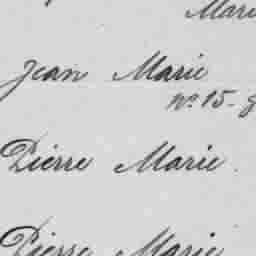 Marie
Jean Marie
nº 15.
Pierre Marie.
Pierre Marie